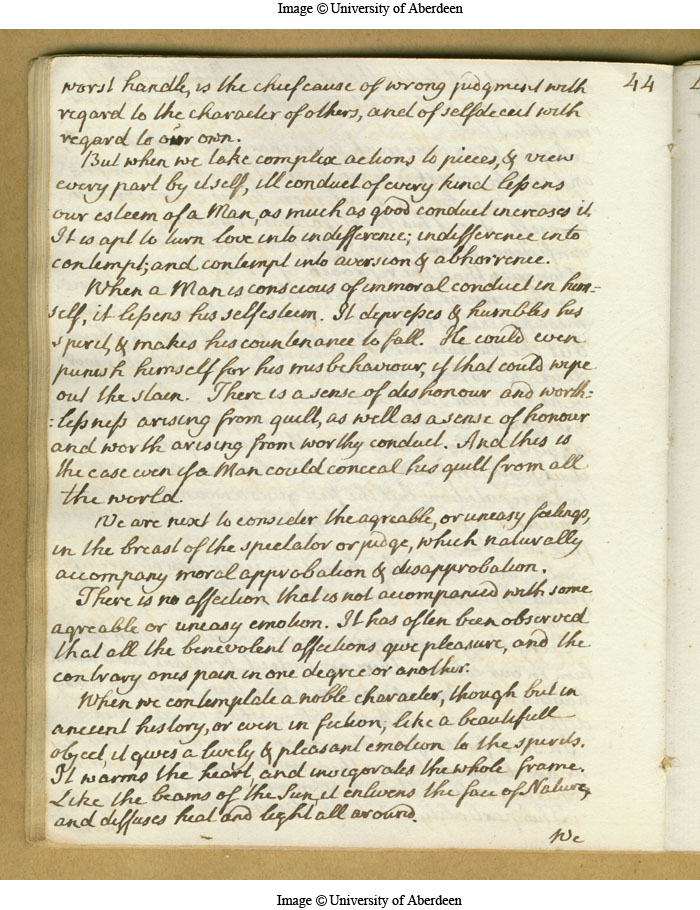 Image © University of Aberdeen
44
worst handle, is the chief cause of wrong judgment with
regard to the character of others, and of selfdeceit with
regard to our own.
But when we take complex actions to pieces, & view
every part by itself, ill conduct of every kind lessens
our esteem of a Man, as much as good conduct increases it.
It is apt to turn love into indifference; indifference into
contempt; and contempt into aversion & abhorrence.
When a Man is conscious of immoral conduct in him=
self, it lessens his selfesteem. It depresses & humbles his
spirit, & makes his countenance to fall. He could even
punish himself for his misbehaviour, if that could wipe
out the stain. There is a sense of dishonour and worth=
=lessness arising from guilt, as well as a sense of honour
and worth arising from worthy conduct. And this is
the case even if a Man could conceal his guilt from all
the world.
We are next to consider the agreable, or uneasy feelings,
in the breast of the spectator or judge, which naturally
accompany moral approbation & disapprobation.
There is no affection that is not accompanied with some
agreable or uneasy emotion. It has often been observed
that all the benevolent affections give pleasure, and the
contrary ones pain in one degree or another.
When we contemplate a noble character, though but in
ancient history, or even in fiction; like a beautifull
object, it gives a lively & pleasant emotion to the spirits.
It warms the heart, and invigorates the whole frame.
Like the beams of the Sun, it enlivens the face of Nature,
and diffuses heat and light all around.
We
Image © University of Aberdeen